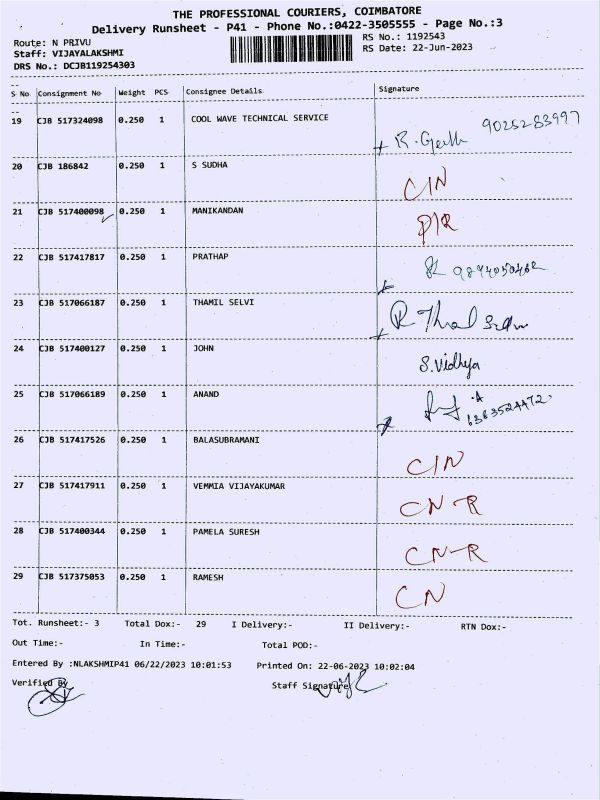 THE PROFESSIONAL COURIERS, COIMBATORE
Delivery Runsheet - P41 - Phone No.:0422-3505555 - Page No.:3
Route: N PRIVU RS No.: 1192543
Staff: VIJAYALAKSHMI RS Date: 22-Jun-2023
DRS No.: DCJB119254303
S No Consignment No Weight PCS Consignee Details Signature
19 CJB 517324098 0.250 1 COOL WAVE TECHNICAL SERVICE 9025283997
20 CJB 186842 0.250 1 S SUDHA CIN
21 CJB 517400098 0.250 1 MANIKANDAN PIR
22 CJB 517417817 0.250 1 PRATHAP
23 CJB 517066187 0.250 1 THAMIL SELVI
24 CJB 517400127 0.250 1 JOHN S. Vidhya
25 CJB 517066189 0.250 1 ANAND
26 CJB 517417526 0.250 1 BALASUBRAMANI CIN
27 CJB 517417911 0.250 1 VEMMIA VIJAYAKUMAR CN-R
28 CJB 517400344 0.250 1 PAMELA SURESH CN-R
29 CJB 517375053 0.250 1 RAMESH CN
Tot. Runsheet:- 3 Total Dox:- 29 I Delivery:- II Delivery:- RTN Dox:-
Out Time:- In Time:- Total POD:-
Entered By :NLAKSHMIP41 06/22/2023 10:01:53 Printed On: 22-06-2023 10:02:04
Verified By Staff Signature